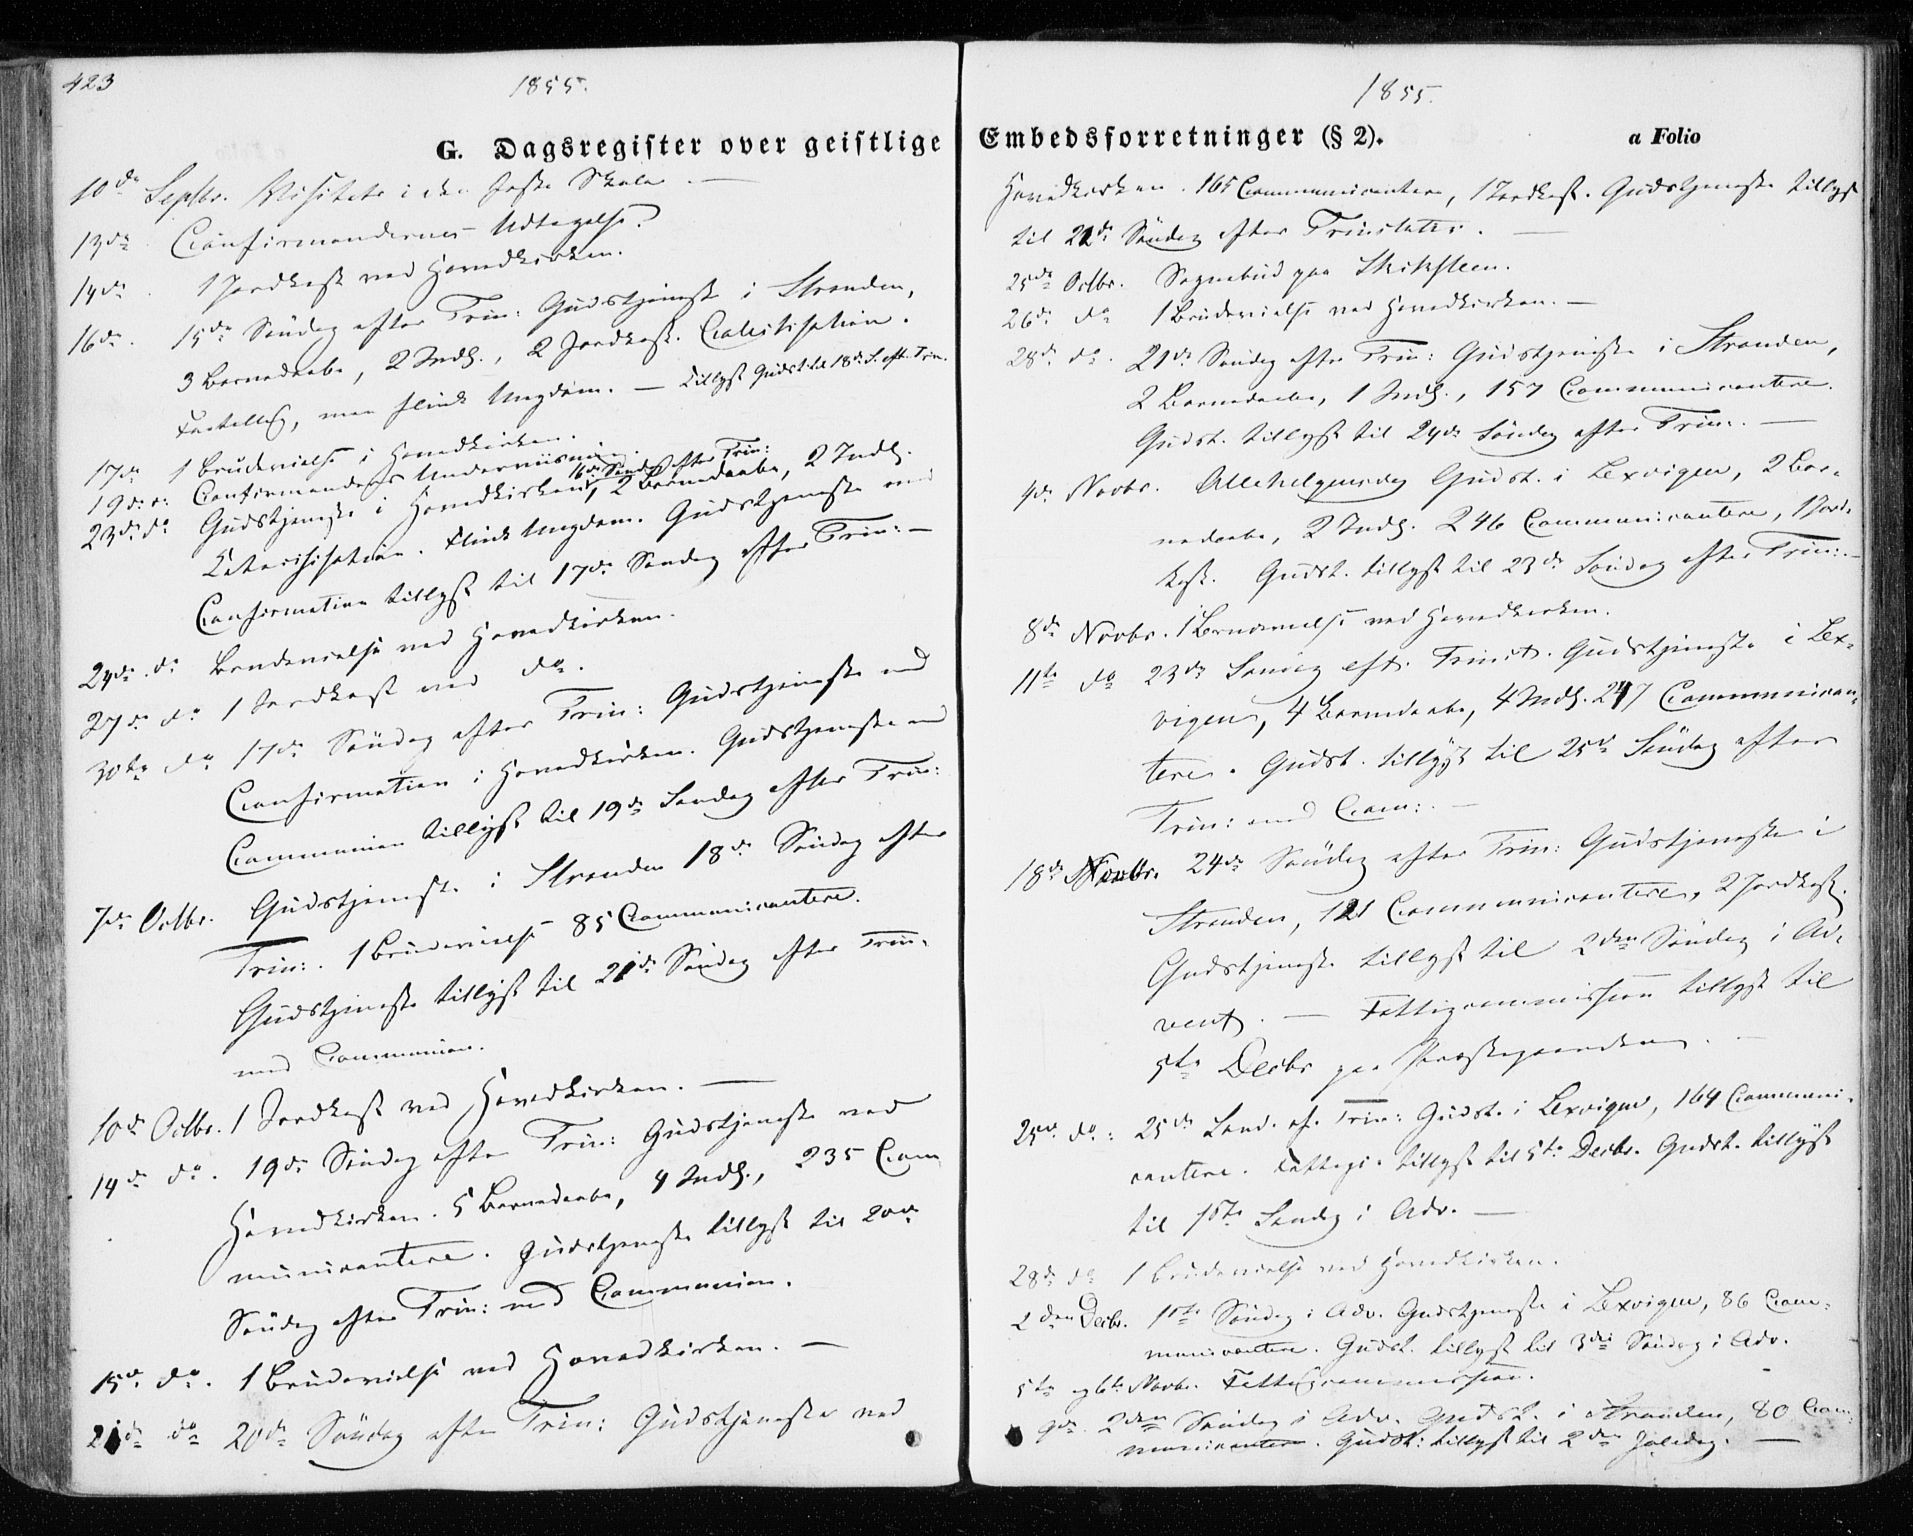 423
1855.
G. Dagsregister over geistlige
10de Septbr. Visitats i den faste Skole. —
13de Confirmandernes Udtagelse.
14de. 1 Jordkast ved Hovedkirken.
16de. 15de Søndag efter Trin: Gudstjeneste i Stranden,
3 Barnedaabe, 2 Indl., 2 Jordkast. Catechisation.
Faatallig, men flink Ungdom. — Tillyst Gudst. til 18de S. eft. Trin.
17de 1 Brudevielse i Hovedkirken.
19de Confirmanders Underviisning.
16de Søndag efter Trin:
23de do Gudstjeneste i Hovedkirken, 2 Barnedaabe, 2 Indl.
Catechisation. Flink Ungdom. Gudstjeneste med
Confirmation tillyst til 17de Søndag efter Trin: —
24de do Brudevielse ved Hovedkirken.
27de do 1 Jordkast ved do.
30te do 17de Søndag efter Trin: Gudstjeneste med
Confirmation i Hovedkirken. Gudstjeneste med
Communion tillyst til 19de Søndag efter Trin:
7de Octbr. Gudstjeneste i Stranden 18de Søndag efter
Trin:. 1 Brudevielse 85 Communicantere.
Gudstjeneste tillyst til 21de Søndag efter Trin.
med Communion.
10de Octbr. 1 Jordkast ved Hovedkirken. —
14de do. 19de Søndag efter Trin: Gudstjeneste ved
Hovedkirken. 5 Barnedaabe, 4 Indl., 235 Com
municantere. Gudstjeneste tillyst til 20de
Søndag efter Trin: med Communion.
15de do. 1 Brudevielse ved Hovedkirken. —
21de do 20de Søndag efter Trin: Gudstjeneste ved
1855.
Embedsforretninger (§ 2).
a Folio
Hovedkirken. 165 Communicantere, 1 Jordkast. Gudstjeneste tillyst
til 22de Søndag efter Trinitatis. —
25de Octbr. Sognebud paa
26de do 1 Brudevielse ved Hovedkirken. —
28de do. 21de Søndag efter Trin: Gudstjeneste i Stranden,
2 Barnedaabe, 1 Indl., 157 Communicantere.
Gudst. tillyst til 24de Søndag efter Trin:. —
4de Novbr. Allehelgensdag Gudst. i Lexvigen, 2 Bar-
nedaabe, 2 Indl. 246 Communicantere, 1 Jord-
kast. Gudst. tillyst til 23de Søndag efter Trin:. —
8de Novbr. 1 Brudevielse ved Hovedkirken.
11te do 23de Søndag eft. Trinit. Gudstjeneste i Lex-
vigen, 4 Barnedaabe, 4 Indl. 247 Communican-
tere. Gudst. tillyst til 25de Søndag efter
Trin: med Com:. —
18de Novbr. 24de Søndag efter Trin: Gudstjeneste i
Stranden, 121 Communicantere, 2 Jordkast.
Gudstjeneste tillyst til 2den Søndag i Ad-
vent. — Fattigcommission tillyst til
5te Decbr paa Præstegaarden. —
25de do: 25de Sønd. ef. Trin: Gudst. i Lexvigen, 164 Communi-
cantere. Fattigc. tillyst til 5te Decbr. Gudst. tillyst
til 1ste Søndag i Adv. —
28de do 1 Brudevielse ved Hovedkirken.
2den Decbr. 1ste Søndag i Adv. Gudstjeneste i Lexvigen, 86 Com-
municantere. Gudst. tillyst til 3die Søndag i Adv.
5te og 6te Novbr. Fattigcommission.
9de. 2den Søndag i Adv. Gudst. i Stranden, 80 Com
municantere. Gudst: tillyst til 2den Juledag. —